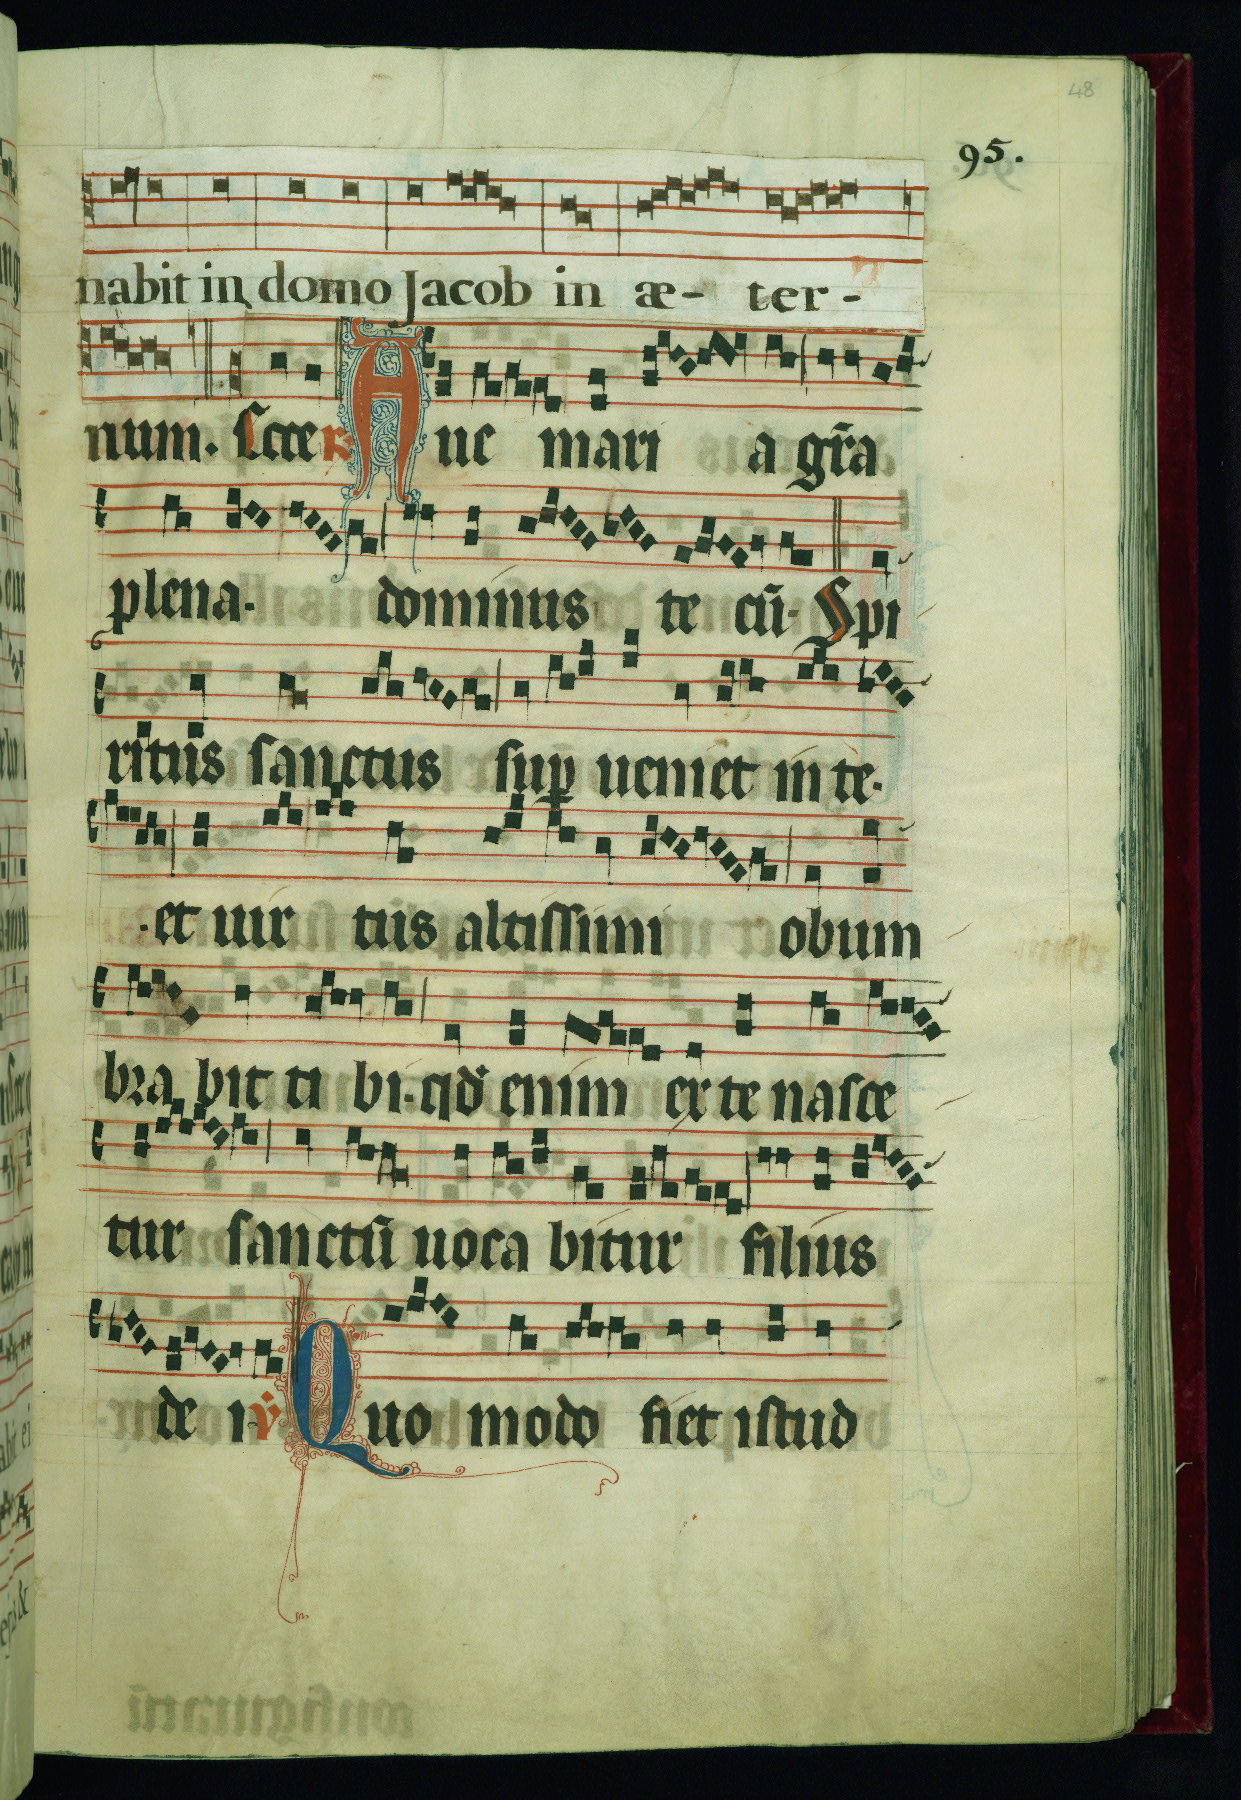 48
95.
nabit in domo Jacob in æ- ter-
num. Ecce ℟ Aue mari a gr̄a
plena. dominus te cū. Spi
ritus sanctus sup̱ ueniet in te.
.et uir tus altissimi obum
bra bit ti bi. qd̄ enim ex te nasce
tur sanctū uoca bitur filius
de i. ℣ Quo modo fiet istud